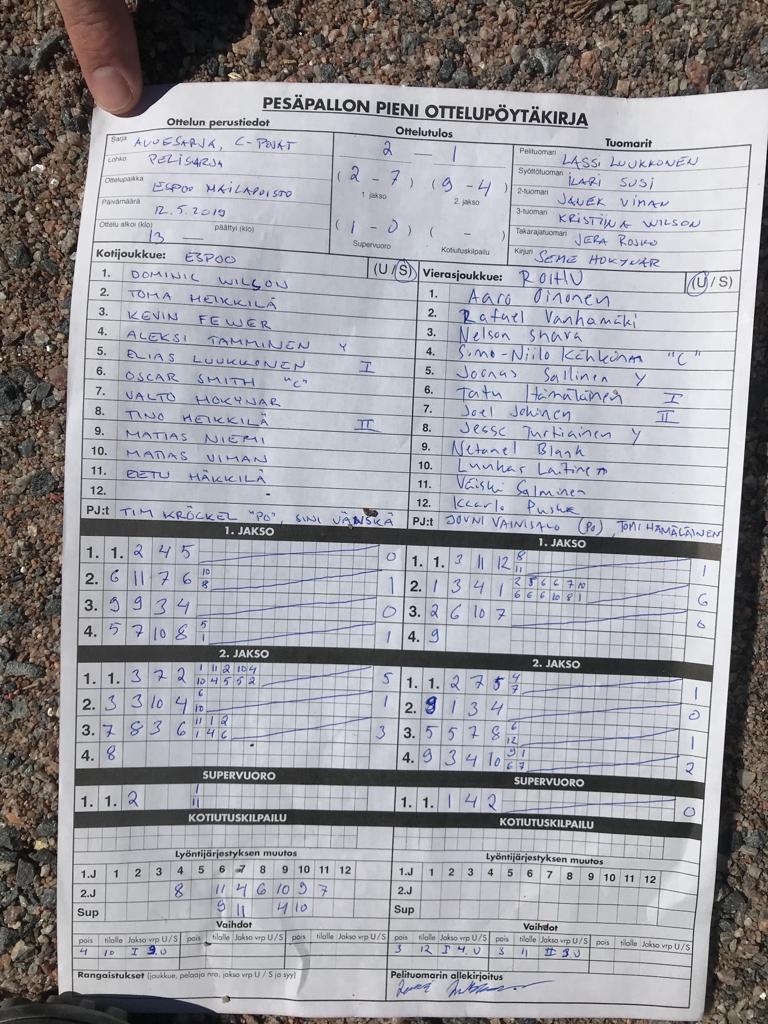 PESÄPALLON PIENI OTTELUPÖYTÄKIRJA
Ottelun perustiedot
Ottelutulos
Tuomarit
Sarja ALUESARJA, C-POJAT
Lohko PELISARJA
Ottelupaikka ESPOO MAILAPUISTO
Päivämäärä 12.5.2019
Ottelu alkoi (klo) 13 — päättyi (klo)
2 — 1
(2 - 7) (9 - 4)
1. jakso 2. jakso
(1 - 0) ( - )
Supervuoro Kotiutuskilpailu
Pelituomari LASSI LUUKKONEN
Syöttötuomari ILARI SUSI
2-tuomari JANEK VIMAN
3-tuomari KRISTIINA WILSON
Takarajatuomari JERA ROSKO
Kirjuri SEME HOKYNAR
Kotijoukkue: ESPOO (U / S)
1. DOMINIC WILSON
2. TOMA HEIKKILÄ
3. KEVIN FEWER
4. ALEKSI TAMMINEN Y
5. ELIAS LUUKKONEN I
6. OSCAR SMITH "C"
7. VALTO HOKYNAR
8. TINO HEIKKILÄ II
9. MATIAS NIEMI
10. MATIAS VIMAN
11. EETU HÄKKILÄ
12. -
PJ:t TIM KRÖCKEL "PO", SINI VÄNSKÄ
Vierasjoukkue: ROIHU (U / S)
1. Aaro Oinonen
2. Rafael Vanhamäki
3. Nelson Shava
4. Simo-Niilo Kähkönen "C"
5. Joonas Sallinen Y
6. Tatu Hämäläinen I
7. Joel Johinen II
8. Jesse Turtiainen Y
9. Netanel Blank
10. Luukas Laitinen
11. Väiski Salminen
12. Kaarlo Puska
PJ:t JOUNI VAINISALO (PO), TOMI HÄMÄLÄINEN
1. JAKSO
1. 1. 2 4 5 0
2. 6 11 7 6 10 8 1
3. 9 9 3 4 0
4. 5 7 10 8 5 1 1
1. JAKSO
1. 1. 3 11 12 8 11 1
2. 1 3 4 1 2 5 6 6 7 10 6 6 6 10 8 1 6
3. 2 6 10 7 0
4. 9
2. JAKSO
1. 1. 3 7 2 1 11 2 10 4 10 4 5 5 2 5
2. 3 3 10 4 6 10 1
3. 7 8 3 6 11 1 2 1 4 6 3
4. 8
2. JAKSO
1. 1. 2 7 5 4 7 1
2. 9 1 3 4 0
3. 5 5 7 8 6 12 1
4. 9 3 4 10 9 1 6 7 2
SUPERVUORO
1. 1. 2 1 11
SUPERVUORO
1. 1. 1 4 2 0
KOTIUTUSKILPAILU
KOTIUTUSKILPAILU
Lyöntijärjestyksen muutos
1.J 1 2 3 4 5 6 7 8 9 10 11 12
2.J 8 11 4 6 10 9 7
Sup 9 11 4 10
Lyöntijärjestyksen muutos
1.J 1 2 3 4 5 6 7 8 9 10 11 12
2.J
Sup
Vaihdot
pois tilalle Jakso vrp U / S pois tilalle Jakso vrp U / S pois tilalle Jakso vrp U / S
4 10 I 3.U
Vaihdot
pois tilalle Jakso vrp U / S pois tilalle Jakso vrp U / S pois tilalle Jakso vrp U / S
3 12 I 4.U 3 11 II 3.U
Rangaistukset (joukkue, pelaaja nro, jakso vrp U / S ja syy)
Pelituomarin allekirjoitus